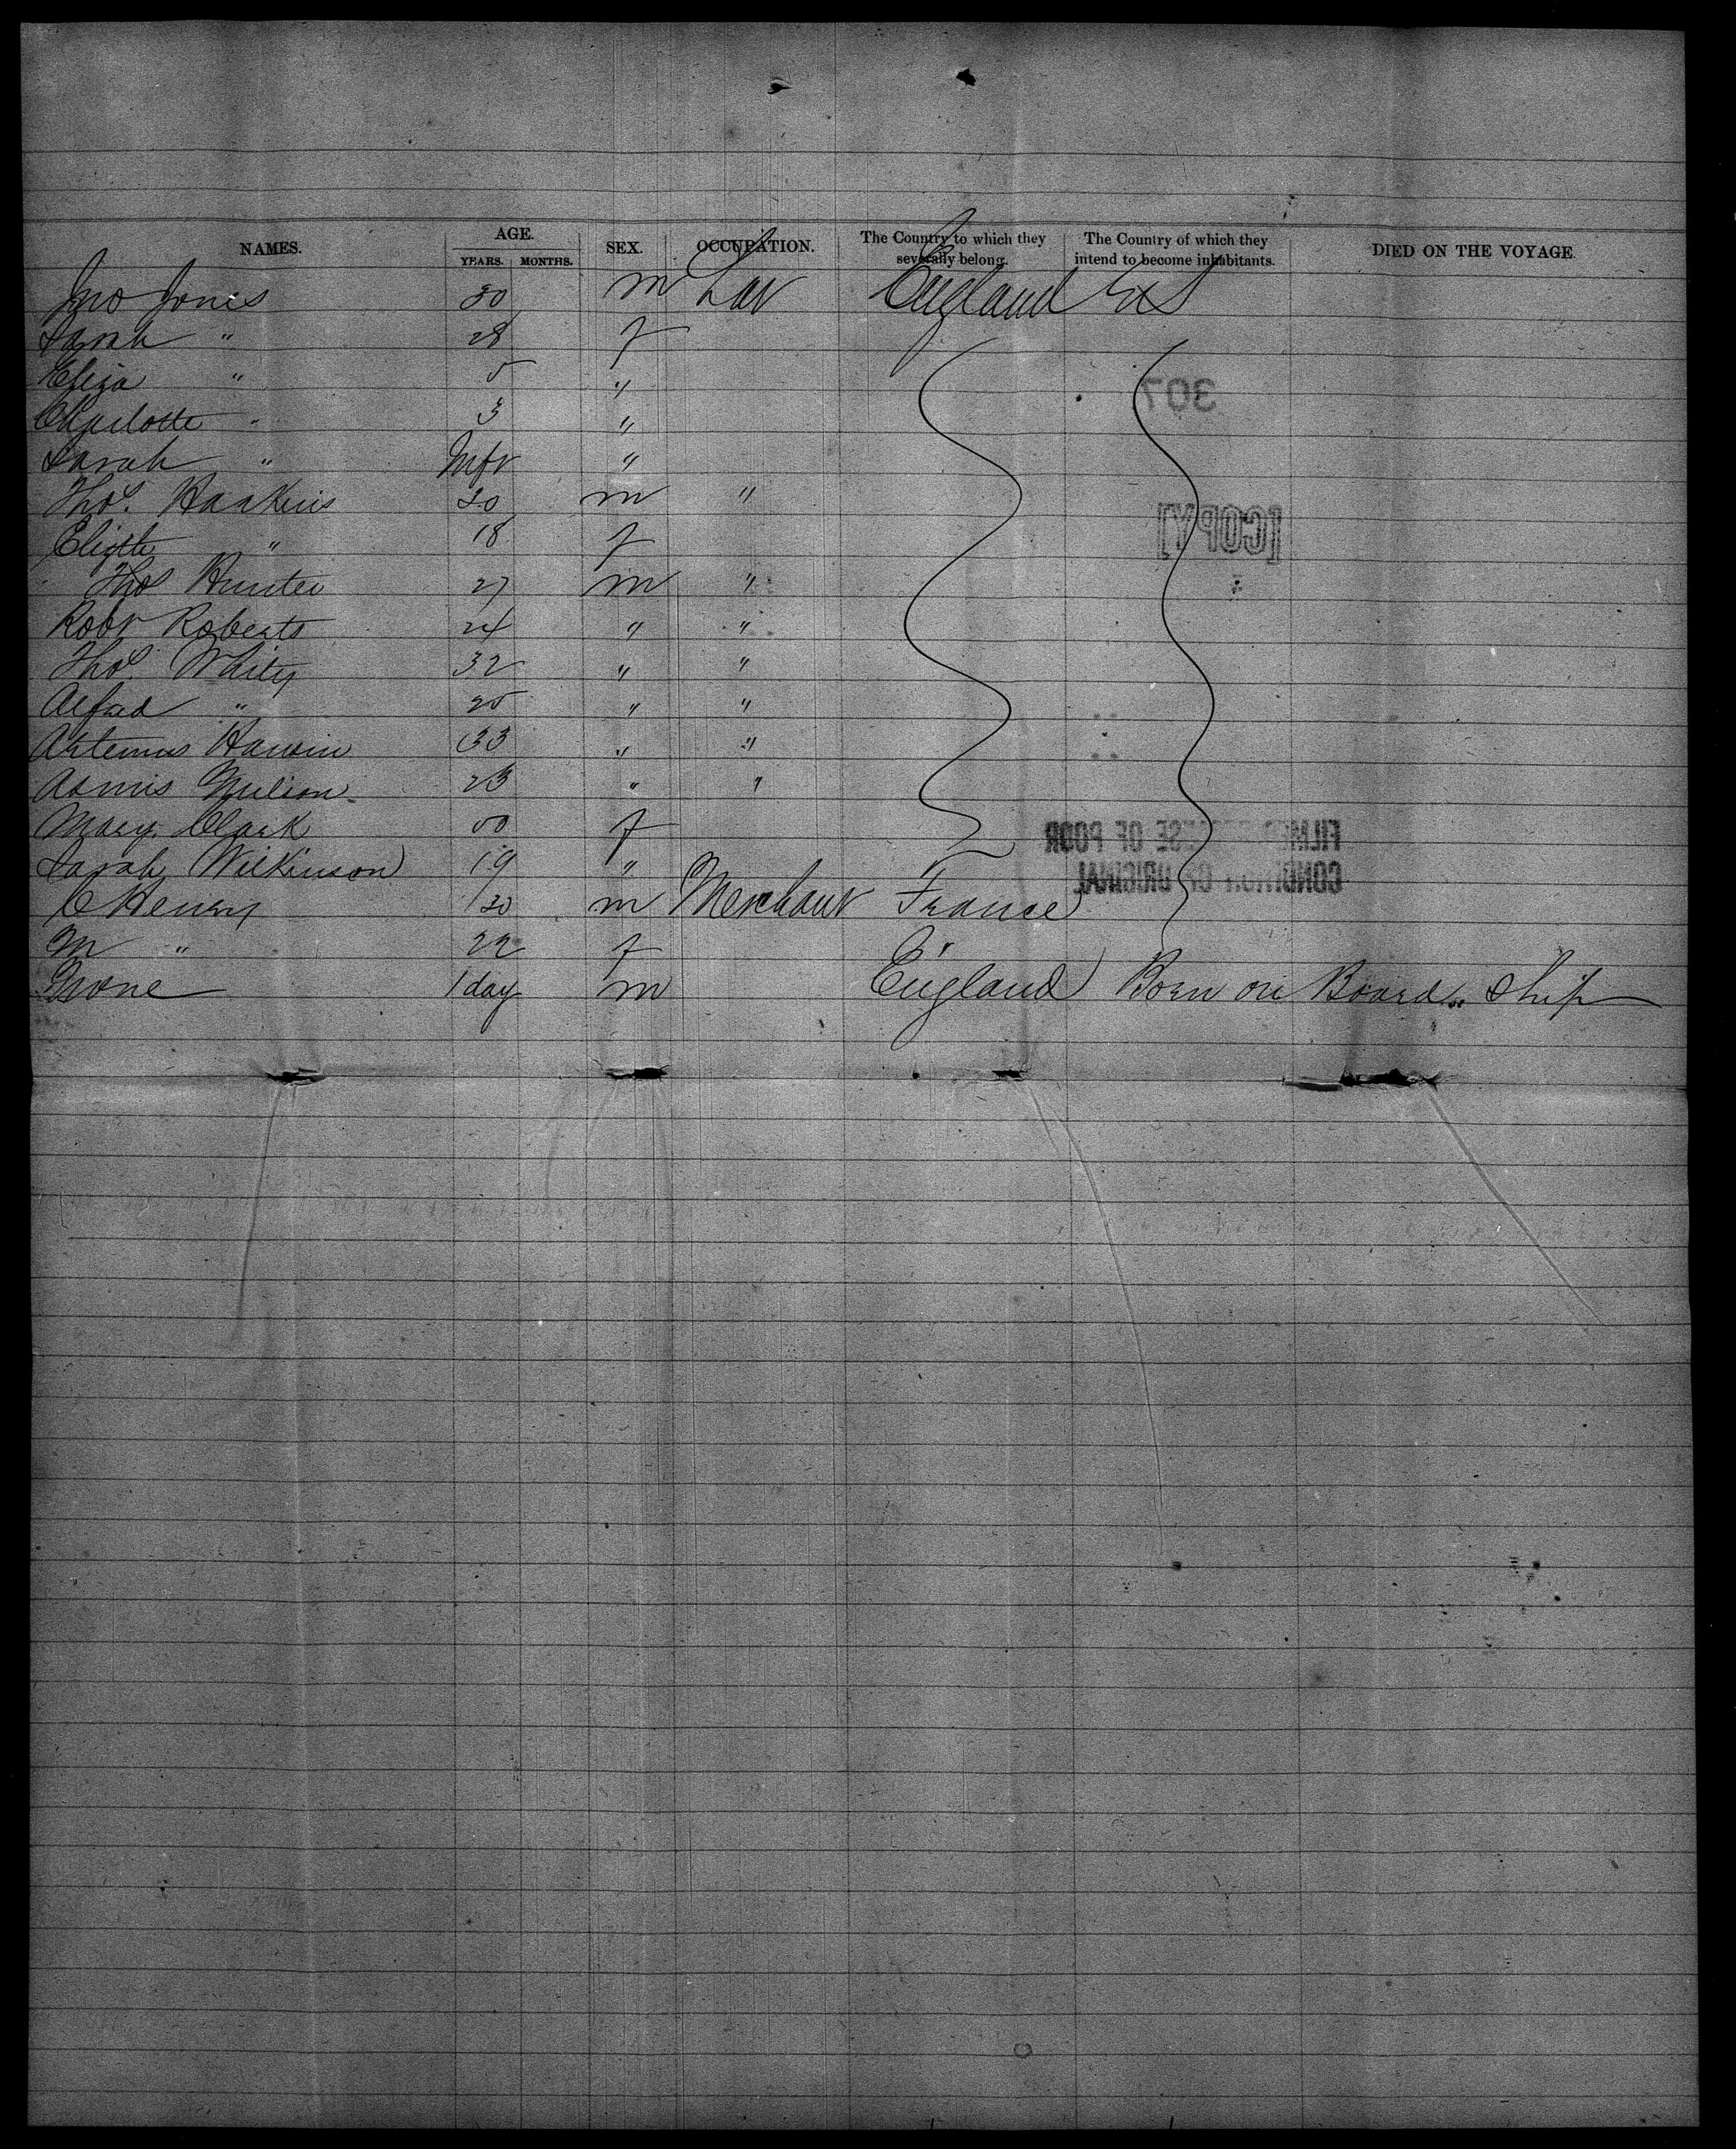 NAMES. AGE. YEARS. MONTHS. SEX. OCCUPATION. The Country to which they severally belong. The Country of which they intend to become inhabitants. DIED ON THE VOYAGE.
Jno Jones 30 m Lab England US
Sarah " 28 f
Eliza " 5 "
Charlotte " 3 "
Sarah " Inft "
Thos. Haskins 20 m "
Elizth " 18 f
Thos Hunter 27 m "
Robt Roberts 24 " "
Thos. White 32 " "
Alfred " 25 " "
Artemus 33 " "
23 " "
Mary Clark 50 f
Sarah Wilkinson 19 " "
C Henry 30 m Merchant France
M " 22 f "
None 1 day m England Born on Board Ship
307
[COPY]
FILMED BECAUSE OF POOR
CONDITION OF ORIGINAL